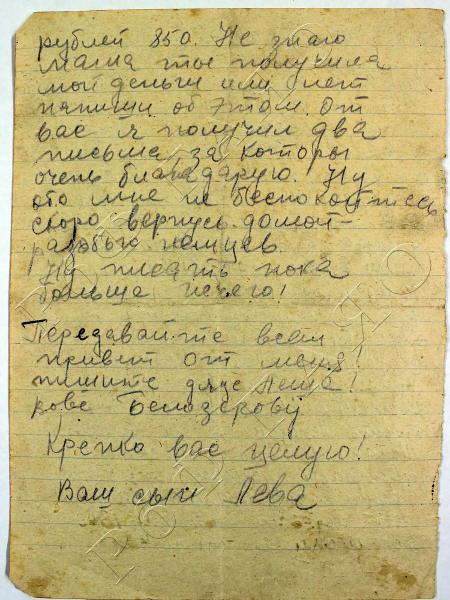 рублей 850. Не знаю
мама ты получила
мои деньги или нет
напиши об этом. От
вас я получил два
письма за которы
очень благадарю. Ну
обо мне не беспокойтесь
скоро вернусь домой
разобью немцев.
Ну писать пока
больше нечего!
Передавайте всем
привет от меня!
пишите дяде Леше!
Белозерову
Крепко вас целую!
Ваш сын Лева